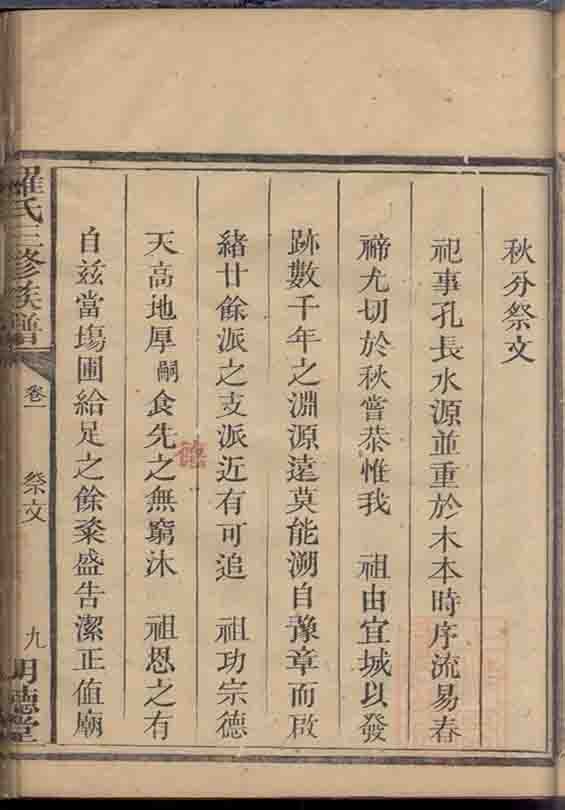 秋分祭文
祀事孔長水源並重於木本時序流易春
禘尤切於秋嘗恭惟我　祖由宜城以發
跡數千年之淵源遠莫能溯自豫章而啟
緒廿餘派之支派近有可追　祖功宗德
天高地厚嗣食先之無窮沐　祖恩之有
自茲當塲圃給足之餘粢盛告潔正值廟
羅氏三修族譜
卷一
祭文
九
明德堂